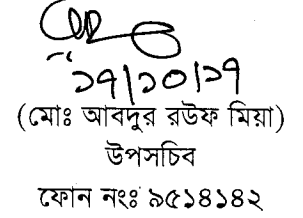 ১৭/১০/১৭
(মোঃ আবদুর রউফ মিয়া)
উপসচিব
ফোন নংঃ ৯৫১৪১৪২